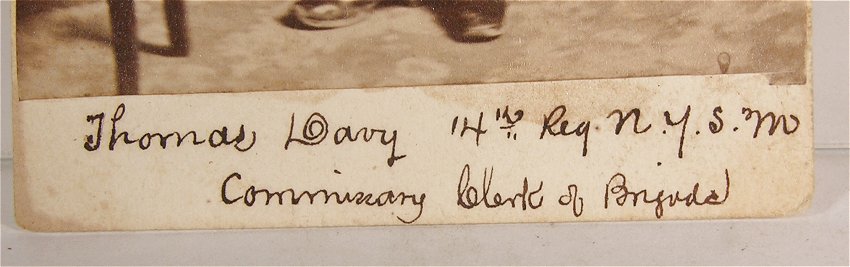 Thomas Davy 14th Reg. N.Y.S.M
Commissary Clerk of Brigade